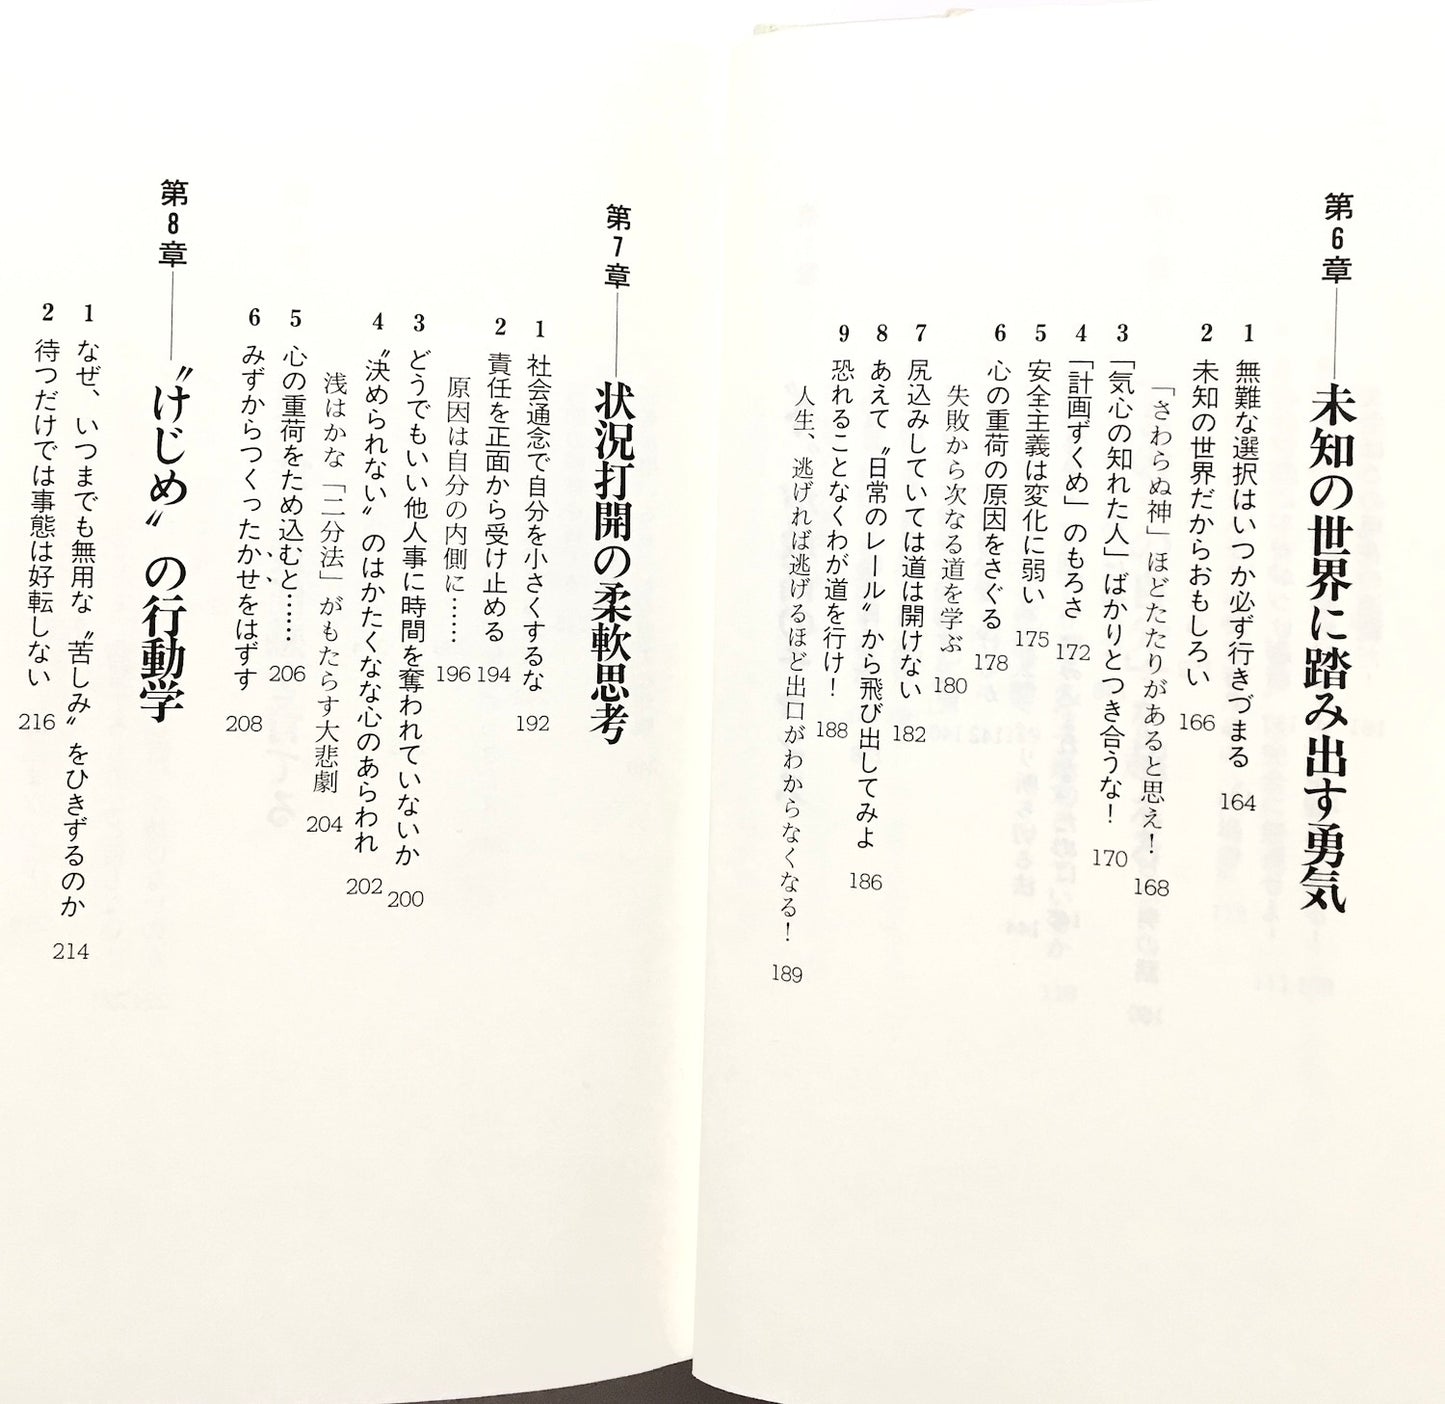 第6章──未知の世界に踏み出す勇気
1 無難な選択はいつか必ず行きづまる 164
2 未知の世界だからおもしろい 166
「さわらぬ神」ほどたたりがあると思え！ 168
3 「気心の知れた人」ばかりとつき合うな！ 170
4 「計画ずくめ」のもろさ 172
5 安全主義は変化に弱い 175
6 心の重荷の原因をさぐる 178
失敗から次なる道を学ぶ 180
7 尻込みしていては道は開けない 182
8 あえて〝日常のレール〟から飛び出してみよ 186
9 恐れることなくわが道を行け！ 188
人生、逃げれば逃げるほど出口がわからなくなる！ 189
第7章──状況打開の柔軟思考
1 社会通念で自分を小さくするな 192
2 責任を正面から受け止める 194
原因は自分の内側に…… 196
3 どうでもいい他人事に時間を奪われていないか 200
4 〝決められない〟のはかたくなな心のあらわれ 202
浅はかな「二分法」がもたらす大悲劇 204
5 心の重荷をため込むと…… 206
6 みずからつくったかせをはずす 208
第8章──〝けじめ〟の行動学
1 なぜ、いつまでも無用な〝苦しみ〟をひきずるのか 214
2 待つだけでは事態は好転しない 216